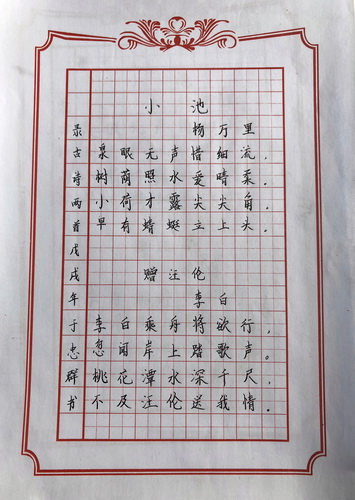 小池
杨万里
泉眼无声惜细流，
树荫照水爱晴柔。
小荷才露尖尖角，
早有蜻蜓立上头。
赠汪伦
李白
李白乘舟将欲行，
忽闻岸上踏歌声。
桃花潭水深千尺，
不及汪伦送我情。
录古诗两首戊戌年于忠群书